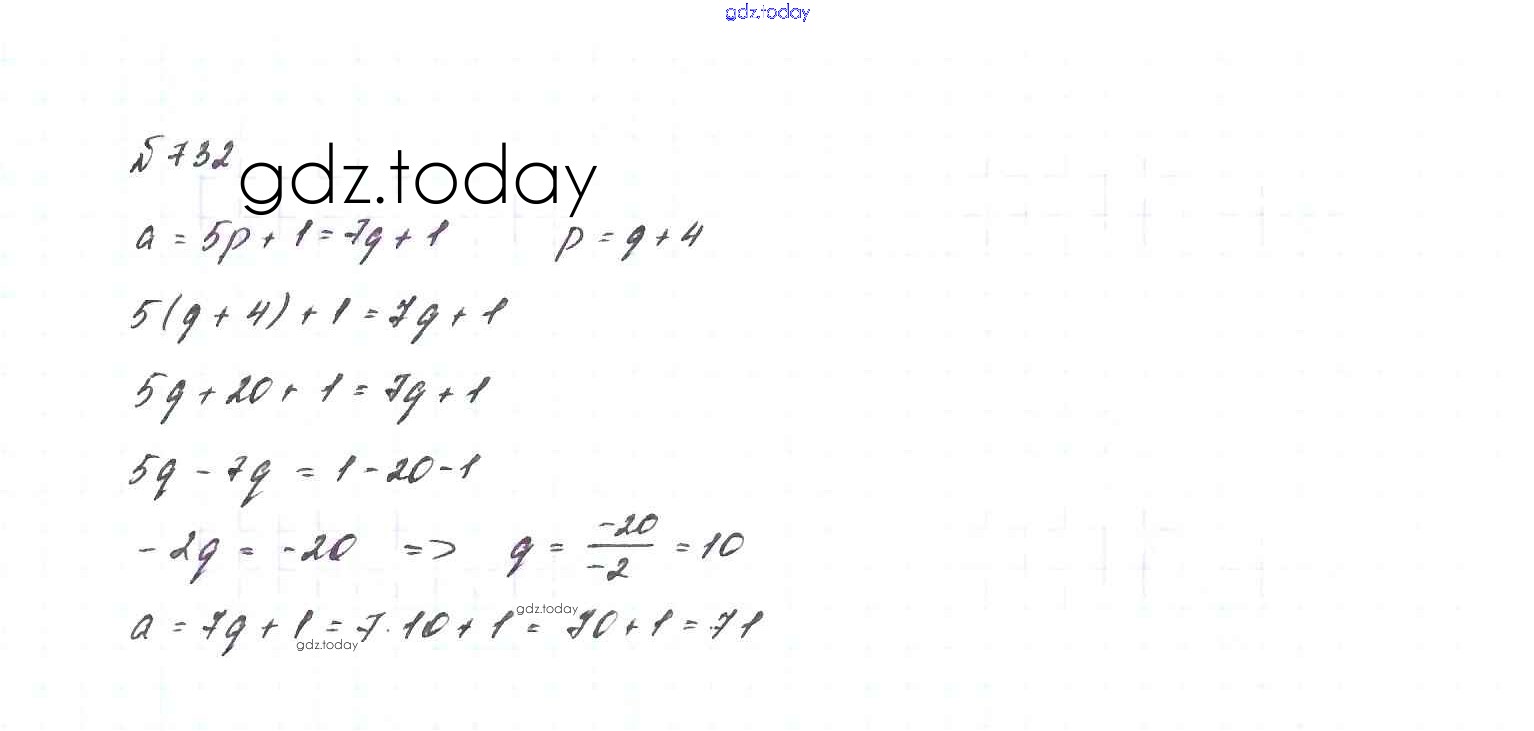 gdz.today
№732
gdz.today
a = 5p + 1 = 7q + 1 p = q + 4
5(q + 4) + 1 = 7q + 1
5q + 20 + 1 = 7q + 1
5q - 7q = 1 - 20 - 1
- 2q = -20 => q = \frac{-20}{-2} = 10
a = 7q + 1 = 7 · 10 + 1 = 70 + 1 = 71
gdz.today
gdz.today